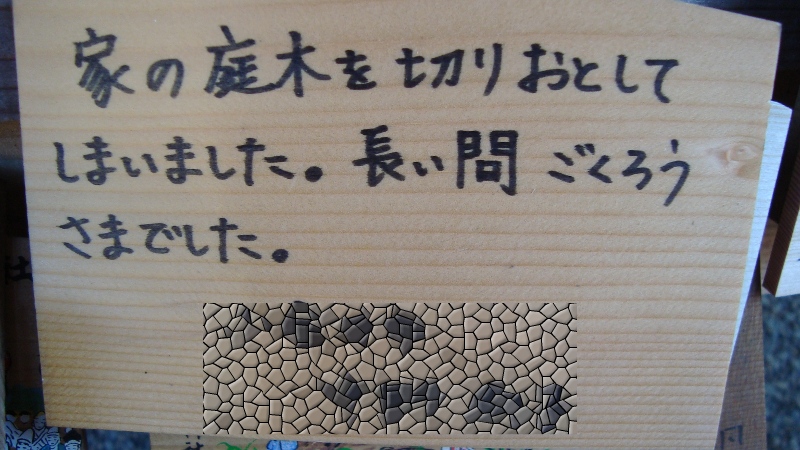 家の庭木を切りおとして
しまいました。長い間 ごくろう
さまでした。